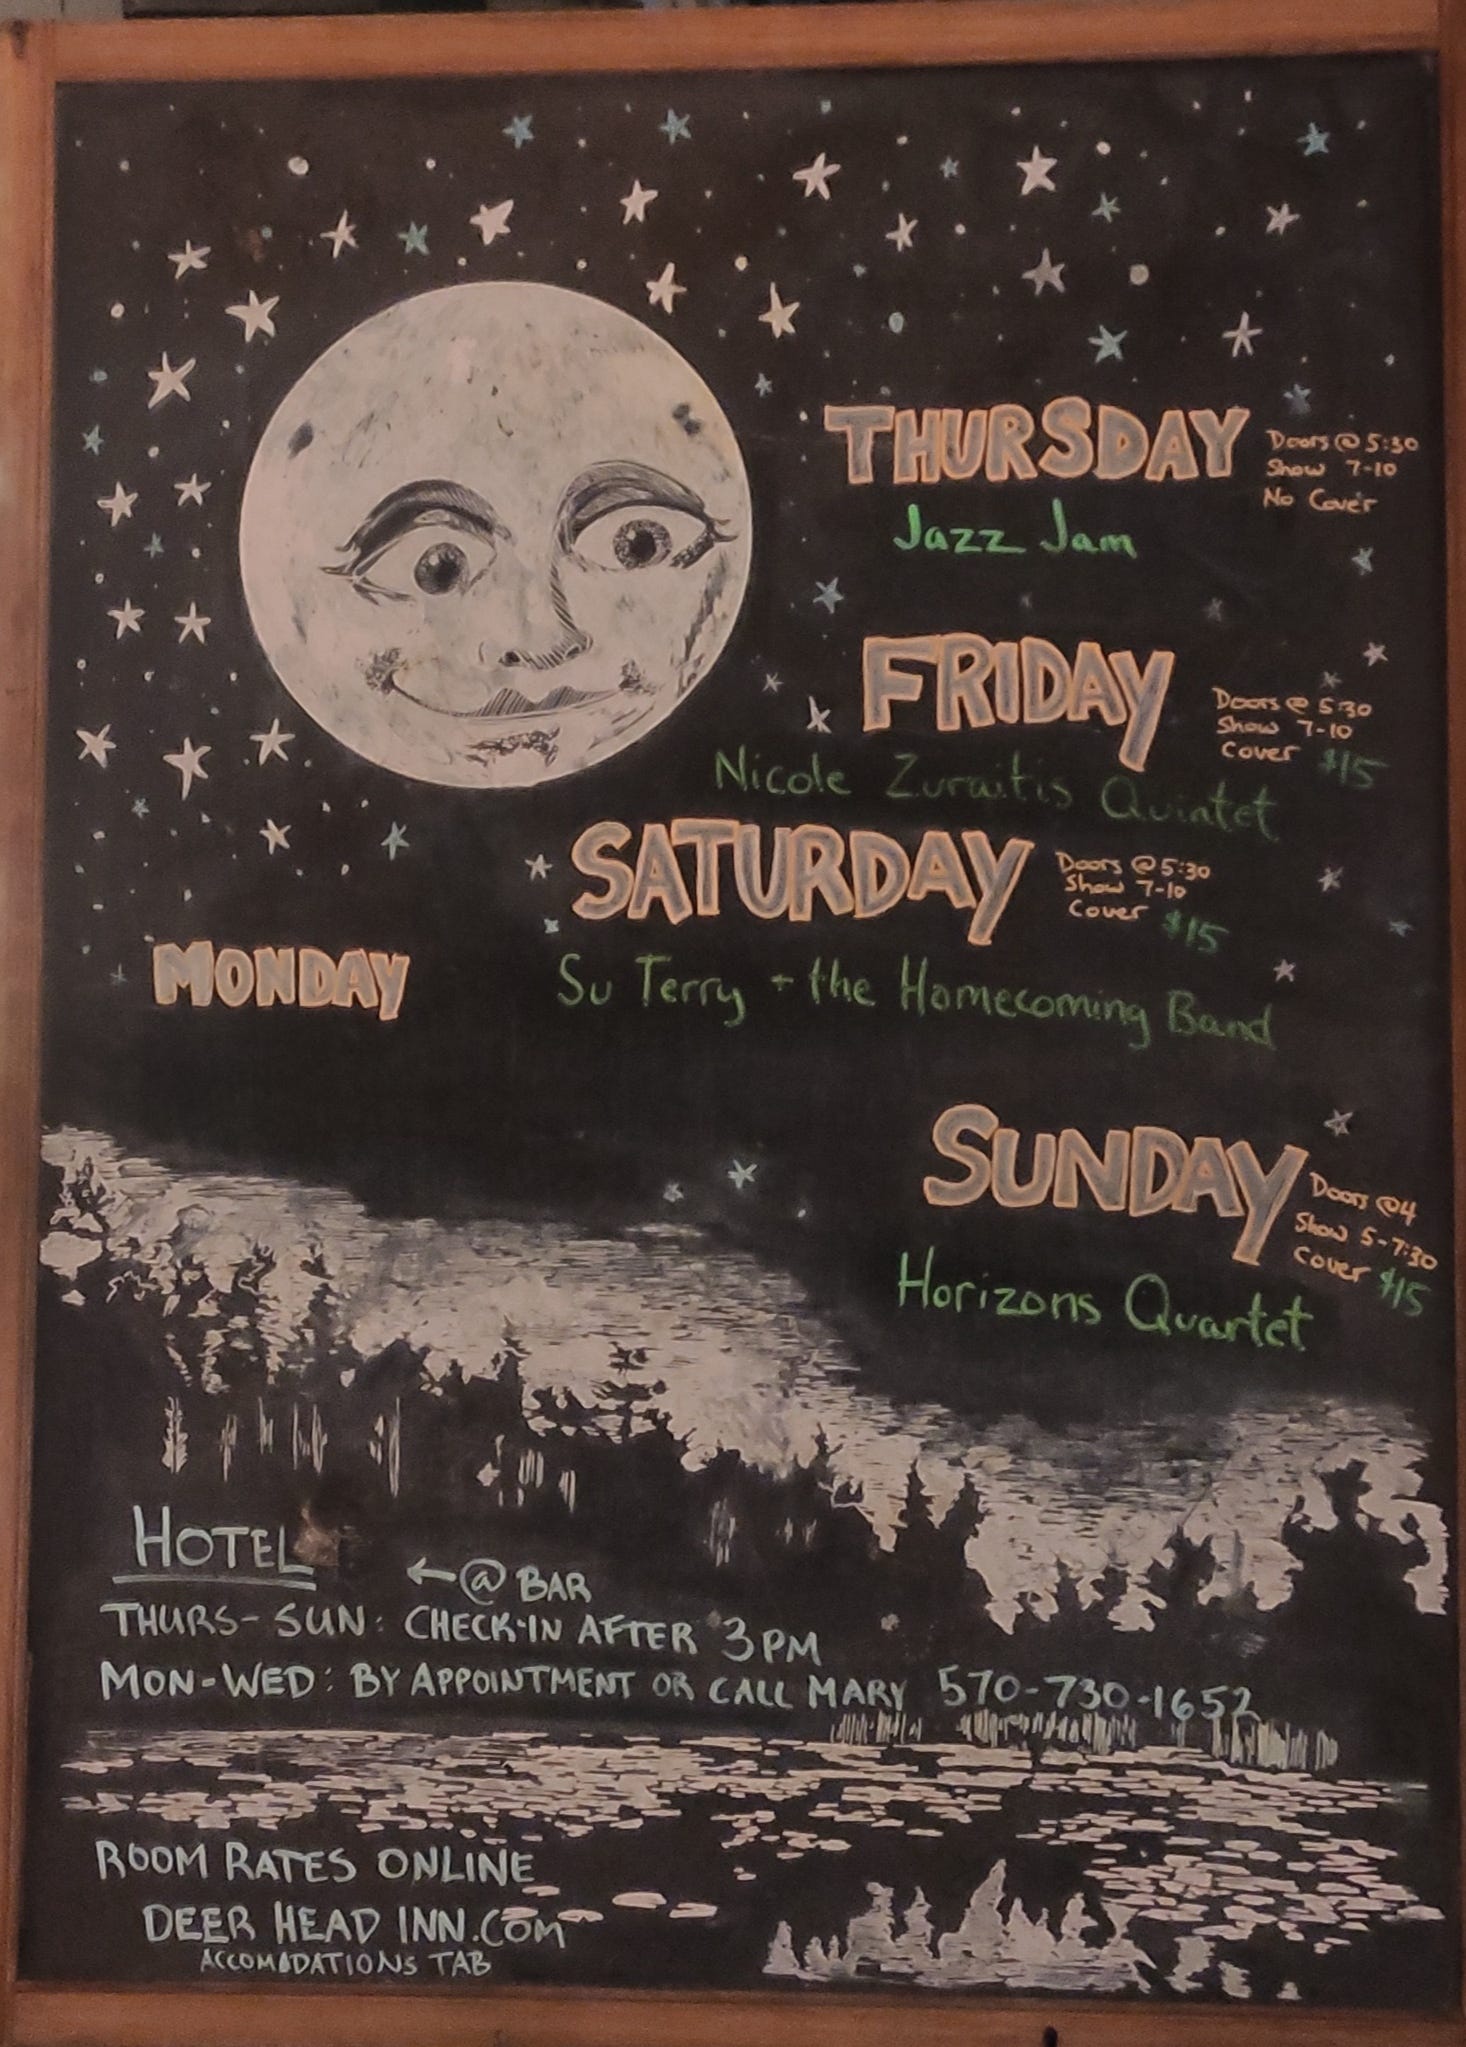 THURSDAY
Doors @ 5:30
Show 7-10
No Cover
Jazz Jam
FRIDAY
Doors @ 5:30
Show 7-10
Cover $15
Nicole Zuraitis Quintet
SATURDAY
Doors @ 5:30
Show 7-10
Cover $15
Su Terry + the Homecoming Band
MONDAY
SUNDAY
Doors @4
Show 5-7:30
Cover $15
Horizons Quartet
HOTEL
←@ BAR
THURS-SUN: CHECK-IN AFTER 3PM
MON-WED: BY APPOINTMENT OR CALL MARY 570-730-1652
ROOM RATES ONLINE
DEER HEAD INN.COM
ACCOMODATIONS TAB